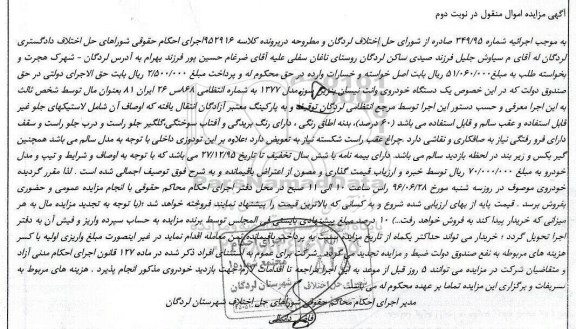 آگهی مزایده اموال منقول در نوبت دوم
به موجب اجرائیه شماره ۳۴۹/۹۵ صادره از شورای حل اختلاف لردگان و مطروحه درپرونده کلاسه ۹۵۲۹۱۶/اجرای احکام حقوقی شوراهای حل اختلاف دادگستری
لردگان له آقای م سیاوش جلیل فرزند صیدی ساکن لردگان روستای تاغان سفلی علیه آقای ضرغام حسین پور فرزند بهرام به آدرس لردگان - شهرک هجرت و
بخواسته طلب به مبلغ ۵۱/۰۶۰/۰۰۰ ریال بابت اصل خواسته و خسارات وارده در حق محکوم له و پرداخت مبلغ ۲/۵۰۰/۰۰۰ ریال بابت حق الاجرای دولتی در حق
صندوق دولت که در این خصوص یک دستگاه خودروی وانت نیسان مدل ۱۳۷۷ به شماره انتظامی ۸۶۸س ۲۶ ایران ۸۱ بعنوان مال توسط شخص ثالث
به این اجرا معرفی و حسب دستور این اجرا توسط مرجع انتظامی لردگان توقیف و به پارکینگ معتبر آزادگان انتقال یافته که اوصاف آن شامل لاستیکهای جلو غیر
قابل استفاده و عقب سالم و قابل استفاده می باشد (۶۰ درصد)، بدنه اطاق رنگی ، دارای رنگ بریدگی و آفتاب سوختگی،گلگیر جلو راست و درب جلو راست و سقف
دارای فرو رفتگی نیاز به صافکاری و نقاشی دارد .چراغ عقب راست شکسته نیاز به تعویض دارد .علاوه بر این تودوزی داخلی با توجه به مدل سالم می باشد همچنین
گیر بکس و زیر بند در لحظه بازدید سالم می باشد. دارای بیمه نامه با شش سال تخفیف تا تاریخ ۲۷/۱۲/۹۵ می باشد که با توجه به اوصاف و شرایط و تیپ و مدل
خودرو به مبلغ ۷۰/۰۰۰/۰۰۰ ریال توسط خبره و ارزیاب قیمت گذاری و مصون از اعتراض باقیمانده و به شرح فوق توصیف اجمالی شده است . لذا مقرر گردیده
خودروی موصوف در روزسه شنبه مورخ ۹۶/۰۶/۲۸ راس ساعت ۱۰ الی ۱۱ صبح در محل دفتر اجرای احکام محاکم حقوقی با انجام مزایده عمومی و حضوری
بفروش برسد . قیمت پایه از بهای ارزیابی شده شروع و به کسانی که بالاترین قیمت را پیشنهاد نمایند فروخته خواهد شد .(با توجه به تجدید مزایده مال به هر
میزانی که خریدار پیدا کند به فروش خواهد رفت..) ۱۰ درصد مبلغ پیشنهادی بایستی فی المجلس توسط برنده مزایده به حساب سپرده واریز و فیش آن به دفتر
اجرا تحویل گردد ؛ خریدار می تواند حداکثر یکماه از تاریخ به پرداخت باقیمانده ثمن معامله اقدام نماید در غیر اینصورت مبلغ واریزی اولیه با کسر
هزینه های مربوطه به نفع صندوق دولت ضبط و مزایده تجدید می گردد. شرکت برای عموم به استثنای افراد ذکر شده در ماده ۱۲۷ قانون اجرای احکام مدنی آزاد
و متقاضیان شرکت در مزایده می توانند ۵ روز قبل از موعد به این اجرا مراجعه تا اقدامات لازم جهت بازدید خودروی مذکور انجام پذیرد . هزینه های مربوط به
تشریفات و برگزاری این مزایده تماما بر عهده محکوم له می باشد
مدیر اجرای احکام محاکم حقوقی شوراهای حل اختلاف شهرستان لردگان